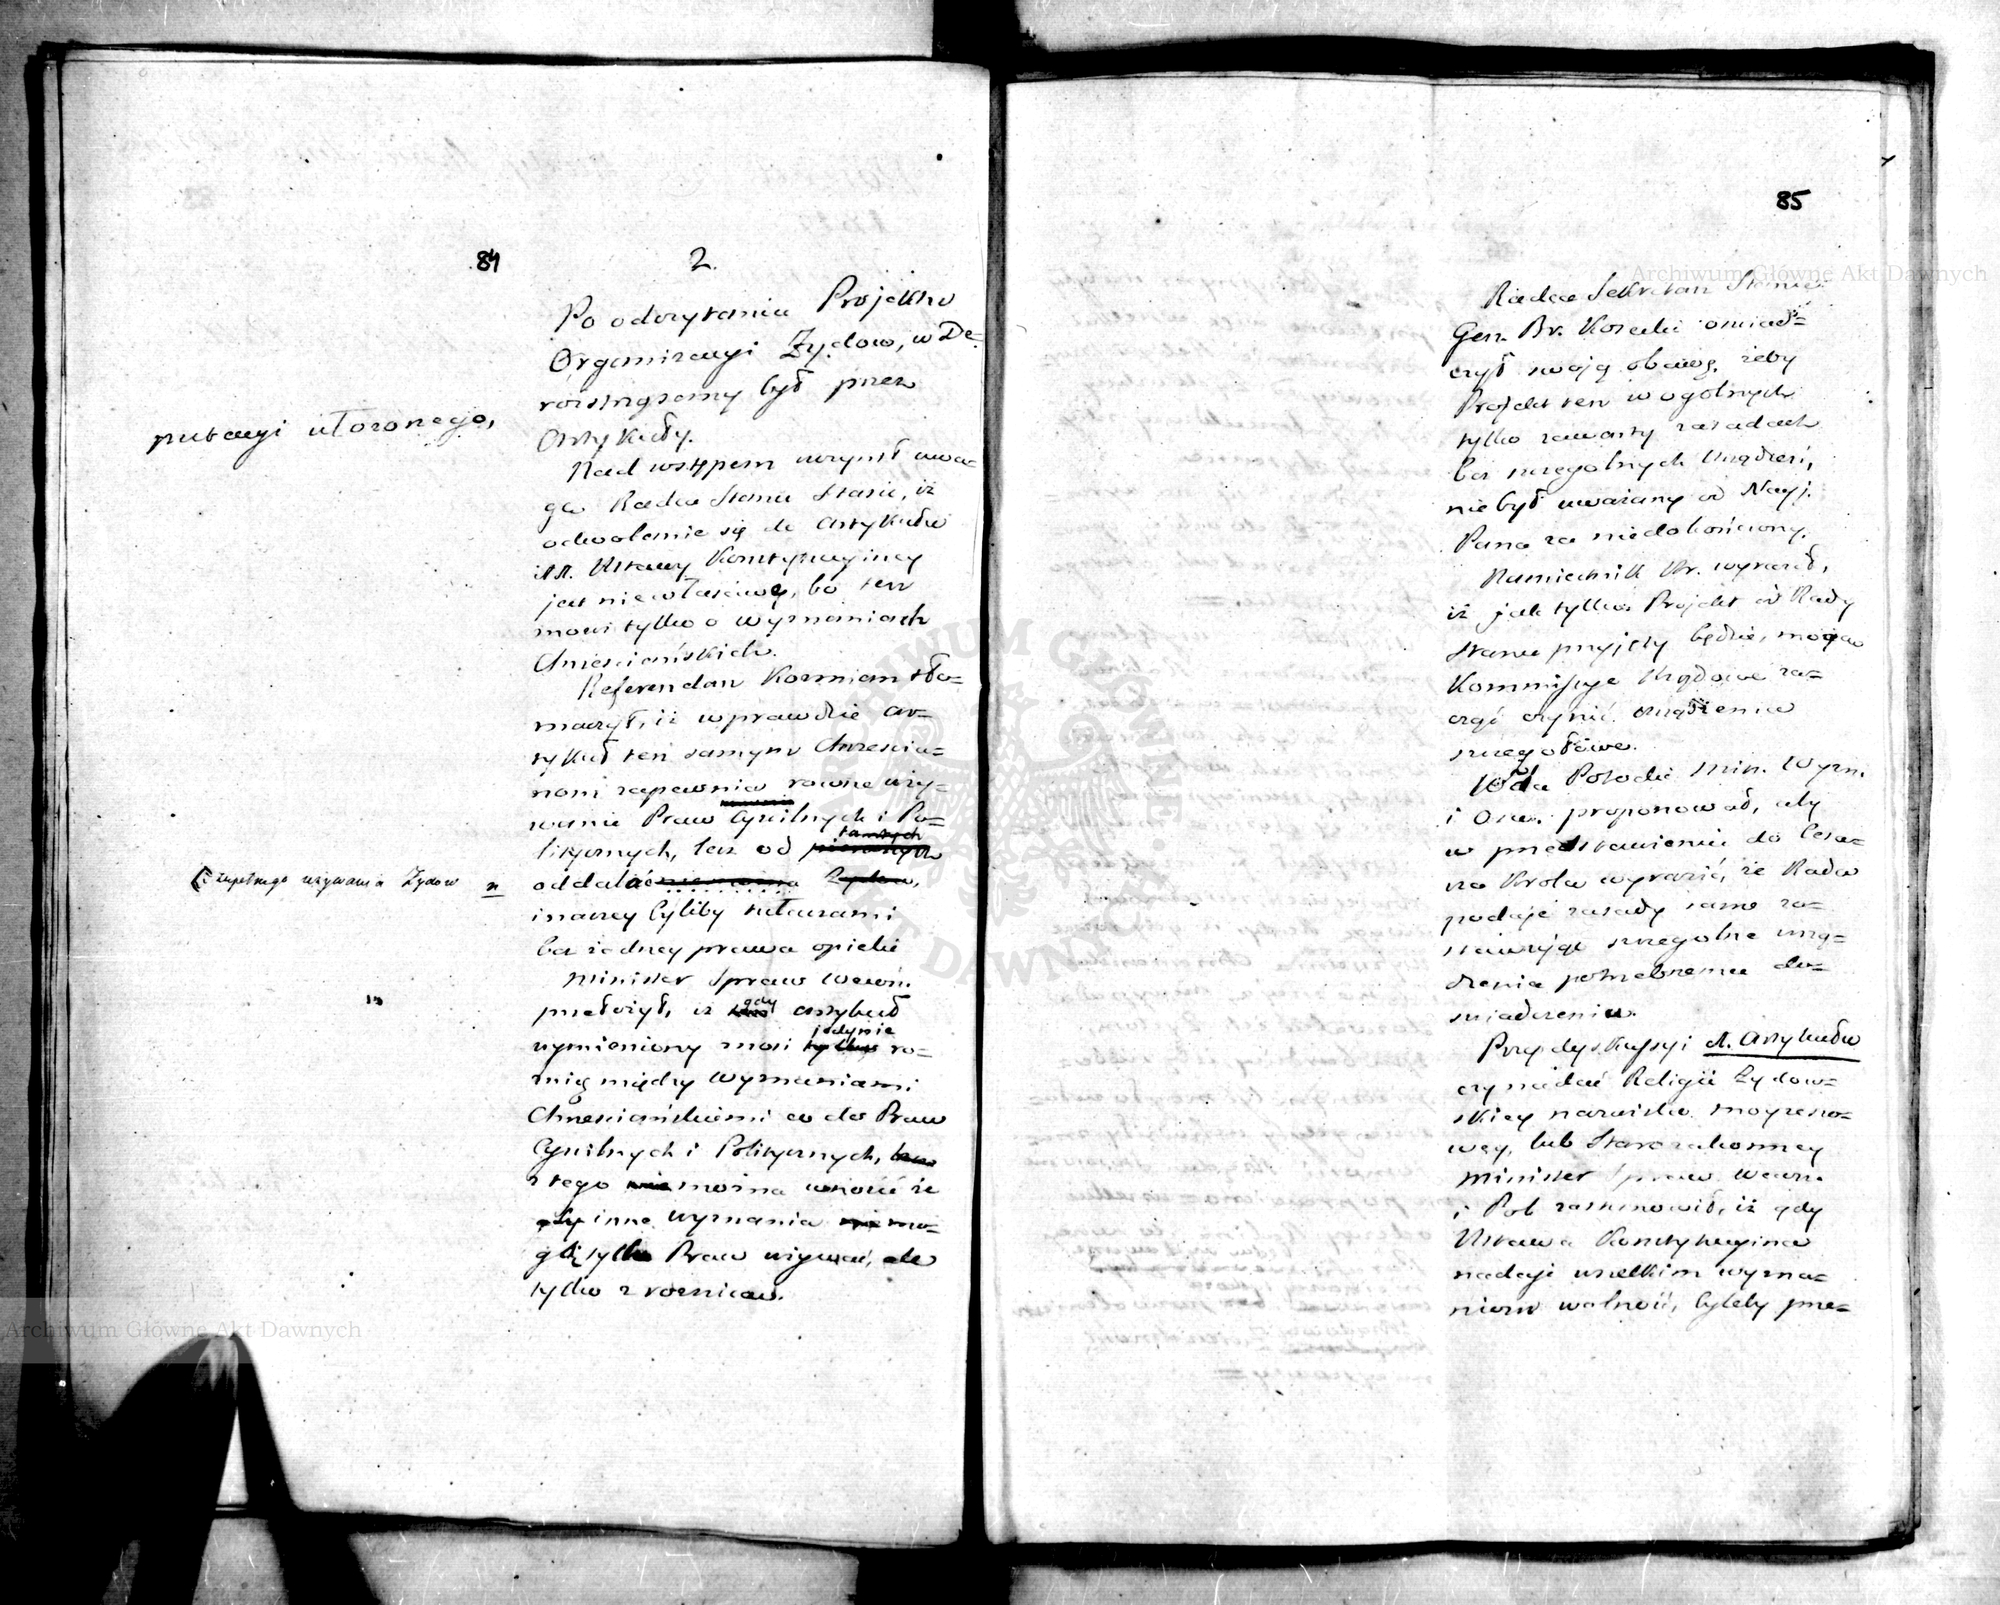 84
2.
Po odczytaniu Projektu
Organizacyi Żydow, w De-
putacyi ułożonego,
roztrząsany był przez
Artykuły.
Nad wstępem uczynił uwa-
gę Radca Stanu Staszic, iż
odwołanie się do Artykułu
Ustawy Konstytucyiney
jest niewłaściwe, bo ten
mowi tylko o wyznaniach
Chrześciańskich.
Referendarz Kozmian tło-
maczył, iż wprawdzie ar-
tykuł ten samym Chrześcia-
nom zapewnia rowne uży-
wanie Praw Cywilnych i Po-
litycznych, lecz od
zupełnego używania Żydow
oddalać
inaczey byliby tułaczami
bez żadney prawa opieki
Minister Spraw Wewn.
przełożył, iż gdy artykuł
wymieniony mowi jedynie ro-
wnię między Wyznaniami
Chrześciańskiemi co do Praw
Cywilnych i Politycznych,
z tego można wnosić że
inne Wyznania mo-
gły tylko Praw używać, ale
tylko z rożnicą.
85
Radca Sekretarz Stanu
Gen. Br. Kosecki oświad-
czył swoję obawę, żeby
Projekt ten w ogólnych
tylko zawarty zasadach
bez szczegolnych Urządzeń,
nie był uważany od Nayj.
Pana za niedokończony.
Namiestnik Kr. wyraził,
iż jak tylko Projekt od Rady
Stanu przyjęty będzie, mogą
Kommissye Rządowe za-
cząć czynić urządzenia
szczegołowe.
Wda Potocki Min. Wyzn.
i Ośw. proponował, aby
w przedstawieniu do Cesa-
rza Krola wyrazić, że Rada
podaje zasady same zo-
stawując szczegolne urzą-
dzenia potrzebnemu do-
świadczeniu.
Przy dyskussyi A. Artykułu
czy nadać Religii Żydow-
skiey nazwisko moyżeszo-
wey, lub Starozakonney
Minister Spraw Wewn.
i Pol. zastanowił, iż gdy
Ustawa Konstytucyina
nadaje wszelkim wyzna-
niom wolność, byleby prze-